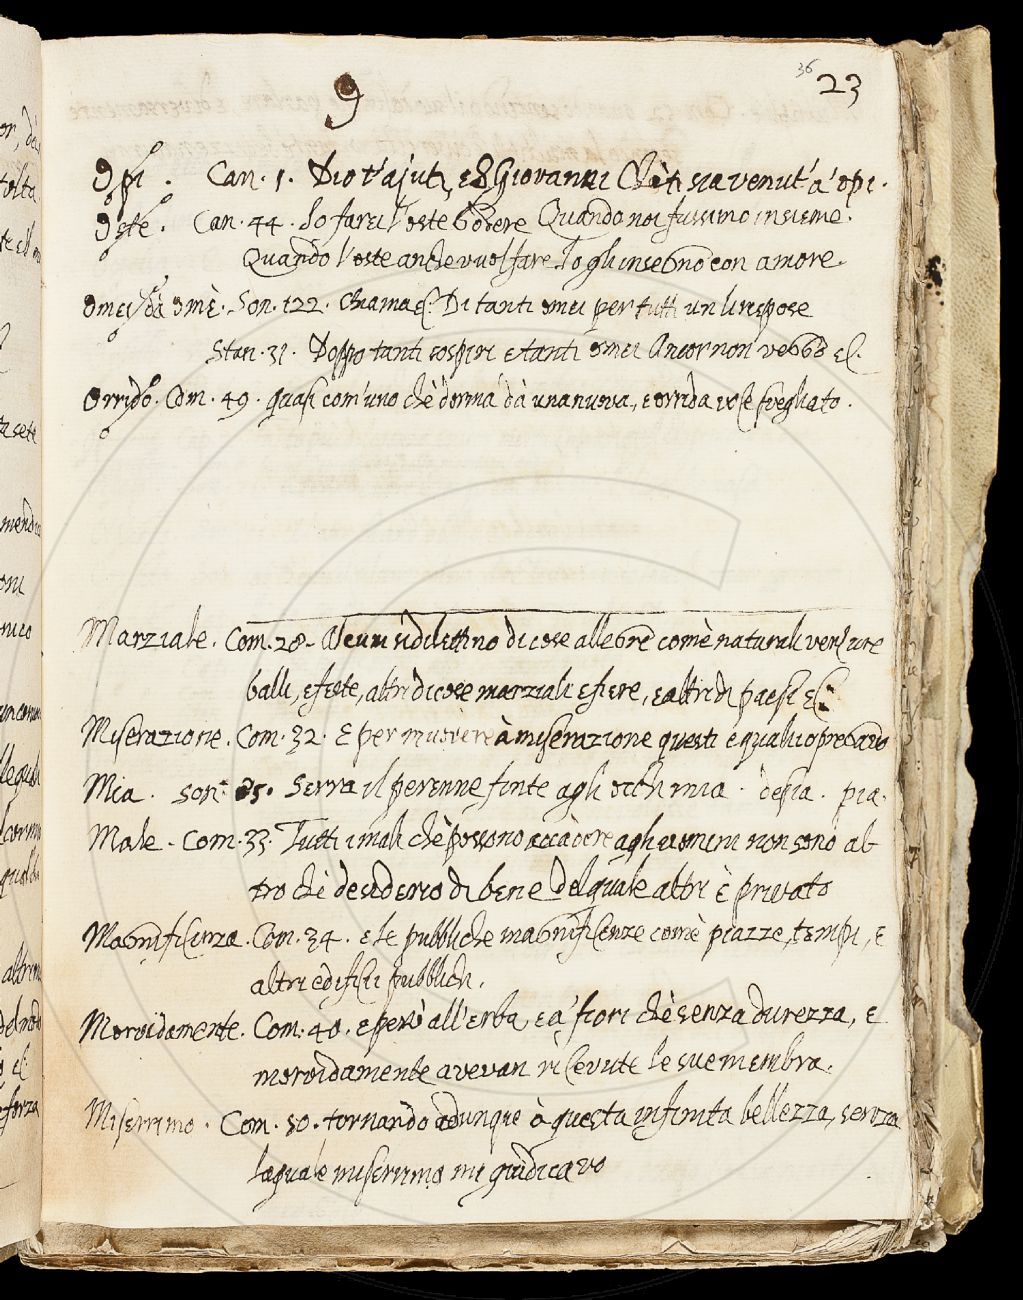 36 23
O
Opi. Can. 1. Dio t'ajuti, e S Giovanni Chè ti sia venut' a' opi.
Oste. Can. 44. Io farei l'oste Godere Quando noi fussimo insieme.
Quando l'oste anche vuol fare Io gli insegno con amore.
Omei, ò omè. Son. 122. Chiama &c: Di tanti omei per tutti un li rispose
Stan. 31. Doppo tanti sospiri e tanti omei Ancor non veggo &c.
Orrido. Com. 49. quasi com'uno chè dorma dà una nuova, e orrida svegliato.
Marziale. Com. 28. Alcuni si dilettino di cose allegre comè naturali venture
balli, e feste, altri di cose marziali e fiere, e altri di &c:
Miserazione. Com. 32. E per à miserazione questi e quali io
Mia. Son: 25. Serra il perenne fonte agli occhi mia. desia. pia.
Male. Com. 33. Tutti i mali chè possono accadere agli uomini non sono al
tro chè desiderio di bene del quale altri è privato
Magnificenza. Com. 34. e le pubbliche magnificenze comè piazze, tempi, e
altri edificii pubblichi.
Morvidamente. Com. 40. e però all'erba, e a' fiori chè senza durezza, e
morvidamente avevan ricevute le sue membra.
Miserrimo. Com. 50. tornando adunque à questa infinita bellezza, senza
la quale miserrimo mi giudicavo